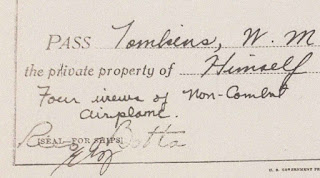 PASS Tomkins, W. M
the private property of Himself
Four views of Non-Combat
Airplane.
[SEAL FOR SHIPS]
U. S. GOVERNMENT